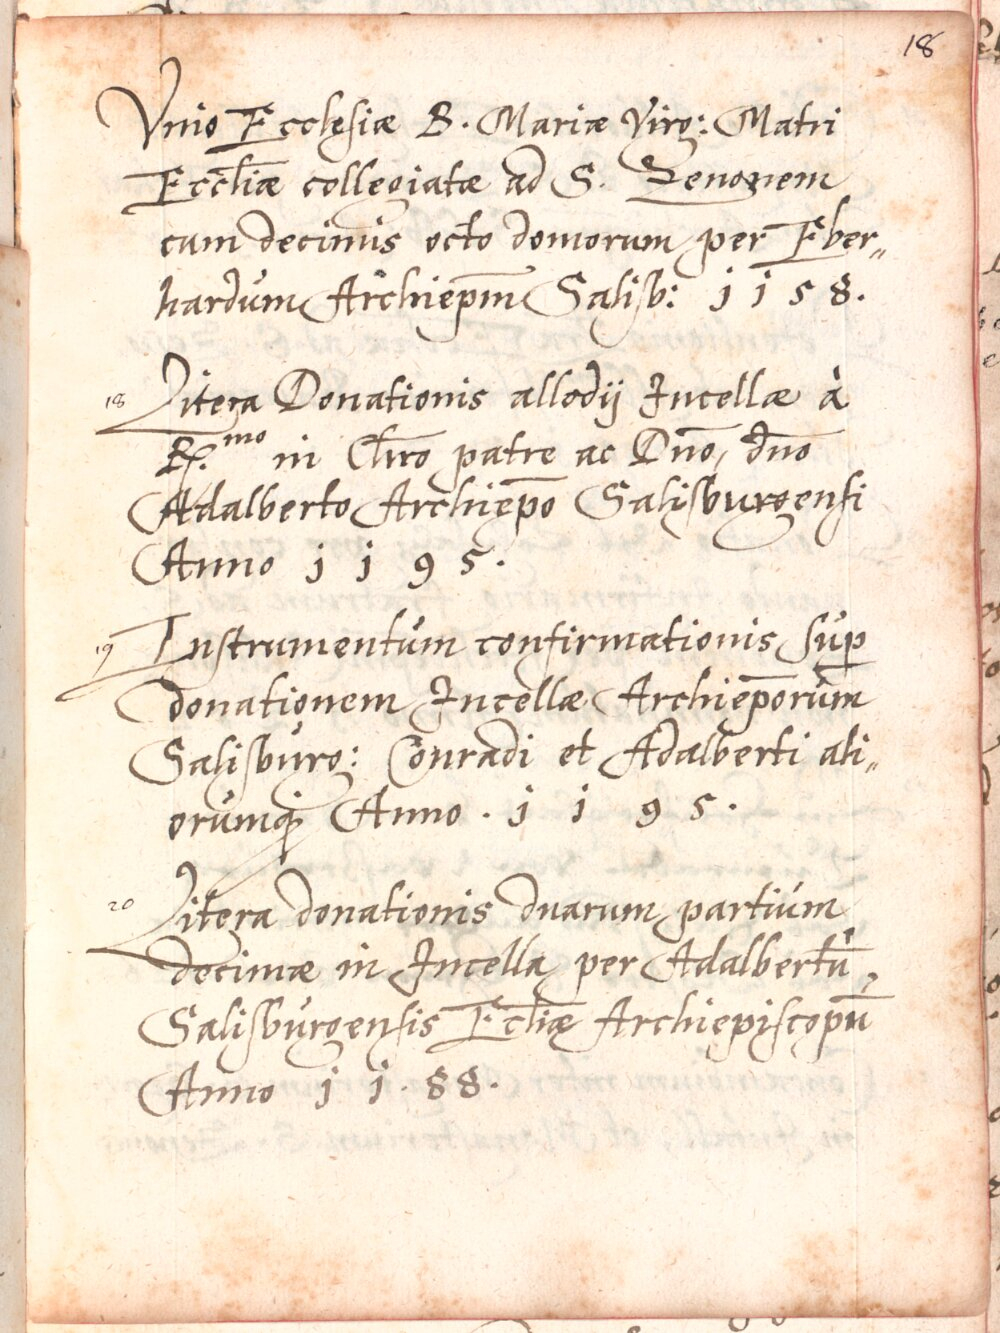 18
Vnio Ecclesiæ B. Mariæ Virg: Matri
Eccl̄iæ collegiatæ ad S. Zenonem
cum decimis octo domorum per Eber„
hardum Archiep̄m Salisb: 1158.
18 Litera Donationis allodij Incellæ à
R.mo in Chr̄o patre ac Dn̄o, dn̄o
Adalberto Archiep̄o Salisburgensi
Anno 1195.
19 Instrumentum confirmationis sup
donationem Incellæ Archiep̄orum
Salisburg: Conradi et Adalberti ali„
orumq; Anno . 1195.
20 Litera donationis duarum partium
decimæ in Incella per Adalbertū
Salisburgensis Eccl̄iæ Archiepiscopū
Anno 11.88.